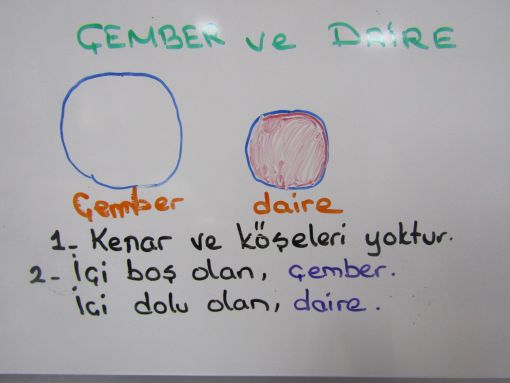 ÇEMBER ve DAİRE
Çember daire
1- Kenar ve köşeleri yoktur.
2- İçi boş olan, çember.
İçi dolu olan, daire.